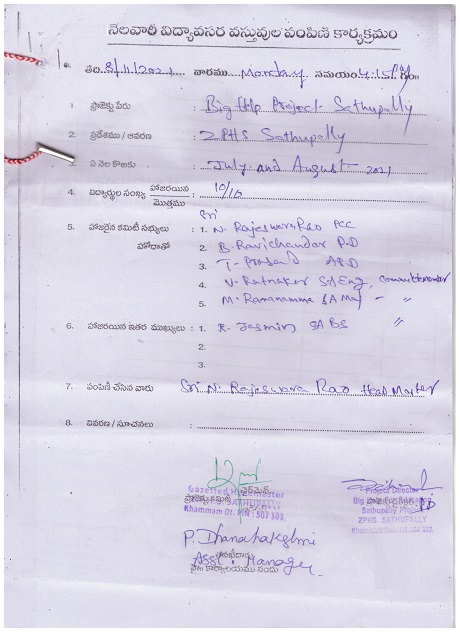 నెలవారీ విద్యావసర వస్తువుల పంపిణి కార్యక్రమం
తేది. 8/11/2021 వారము Monday సమయం 4:15
1. ప్రాజెక్టు పేరు : Big Help Project Sathupally
2. ప్రదేశము / ఆవరణ : ZPHS Sathupally
3. ఏ నెల కొఱకు : July and August 2021
4. విద్యార్థుల సంఖ్య హాజరయిన / మొత్తము : 10/10
Sri
5. హాజరైన కమిటీ సభ్యులు : 1. N. Rajeswara Rao PCC
హోదాతో 2. B. Ravichandar P.D
3. T. Prasad APD
4. V. Ratnaker SA Eng,
5. M. Ramanamma SA Mat - "
6. హాజరయిన ఇతర ముఖ్యులు : 1. R. Jasmin SA BS "
2.
3.
7. పంపిణీ చేసిన వారు : Sri N. Rajeswara Rao Head Master
8. వివరణ / సూచనలు :
ప్రాజెక్టు కమిటీ ఛైర్మెన్
Gazetted Headmaster
Z.P.S.S. SATHUPALLY
Khammam Dt. PIN : 507 303.
Project Director
Sathupally Project
ZPHS. SATHUPALLY
P. Dhanalakshmi
Asst. Manager